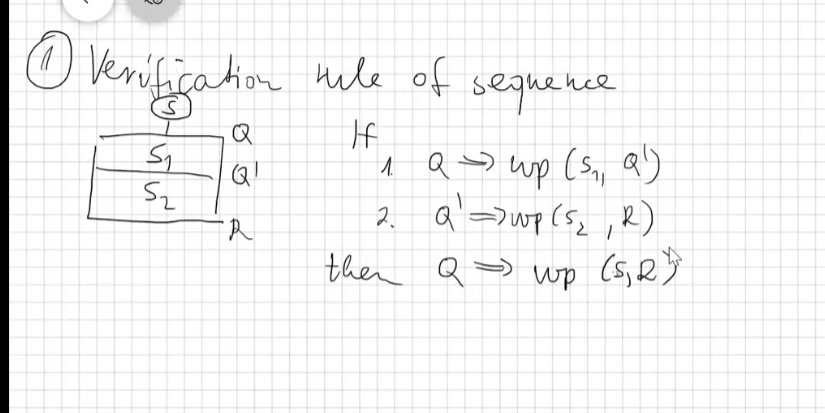 ① Verification rule of sequence
S
S₁
S₂
Q
Q'
R
If
1. Q ⇒ wp (S₁, Q')
2. Q' ⇒ wp (S₂, R)
then Q ⇒ wp (S, R)